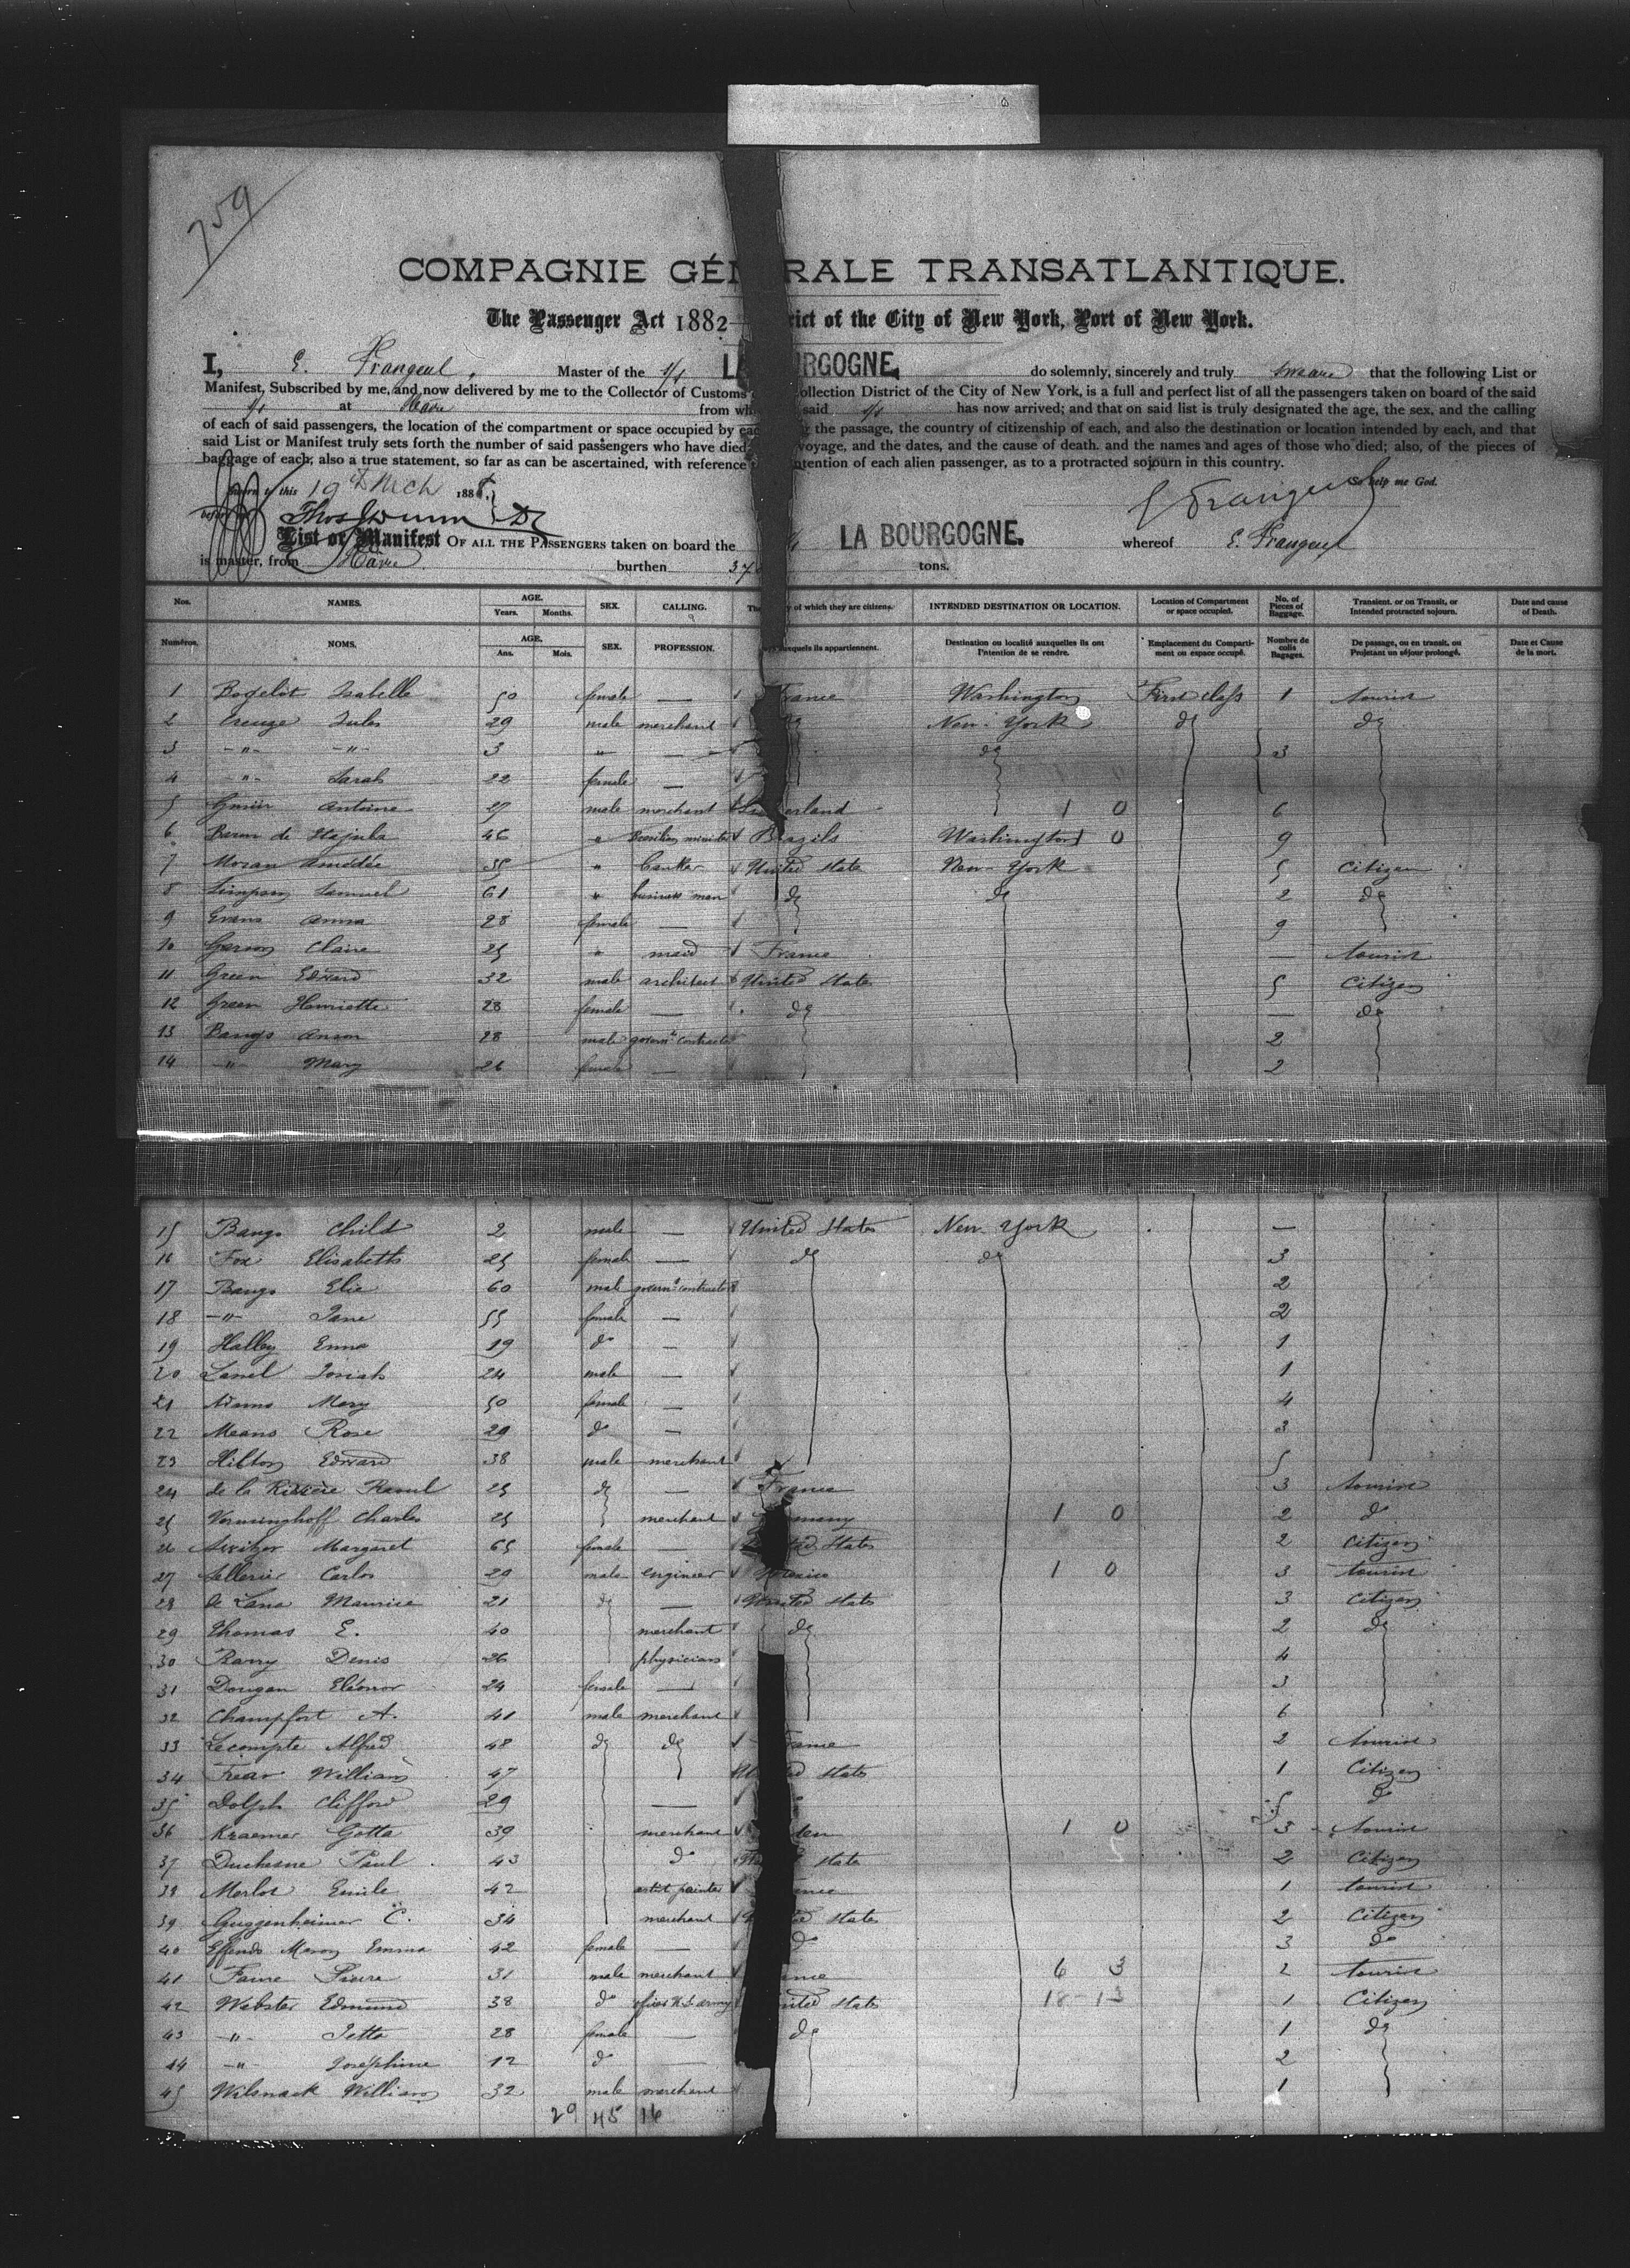 759
COMPAGNIE GÉN RALE TRANSATLANTIQUE.
The Passenger Act 1882 rict of the City of New York, Port of New York.
I, E. Frangeul, Master of the s/s LA URGOGNE, do solemnly, sincerely and truly swear that the following List or
Manifest, Subscribed by me, and now delivered by me to the Collector of Customs ollection District of the City of New York, is a full and perfect list of all the passengers taken on board of the said
s/s at Havre from wh said s/s has now arrived; and that on said list is truly designated the age, the sex, and the calling
of each of said passengers, the location of the compartment or space occupied by eac g the passage, the country of citizenship of each, and also the destination or location intended by each, and that
said List or Manifest truly sets forth the number of said passengers who have died voyage, and the dates, and the cause of death. and the names and ages of those who died; also, of the pieces of
baggage of each, also a true statement, so far as can be ascertained, with reference ntention of each alien passenger, as to a protracted sojourn in this country.
Sworn to this 19th Mch 1888. So help me God.
before Thos Dunn E Frangeul
List or Manifest OF ALL THE PASSENGERS taken on board the LA BOURGOGNE. whereof E. Frangeul
is master, from Havre burthen 37 tons.
Nos. NAMES. AGE. Years. Months. SEX. CALLING. The y of which they are citizens. INTENDED DESTINATION OR LOCATION. Location of Compartment or space occupied. No. of Pieces of Baggage. Transient, or on Transit, or Intended protracted sojourn. Date and cause of Death.
Numéros. NOMS. AGE. Ans. Mois. SEX. PROFESSION. auxquels ils appartiennent. Destination ou localité auxquelles ils ont l'intention de se rendre. Emplacement du Compartiment ou espace occupé. Nombre de colis Bagages. De passage, ou en transit, ou Projetant un séjour prolongé. Date et Cause de la mort.
1 Bogelot Isabelle 50 female — France Washington First class 1 tourist
2 Creuze Jules 29 male merchant do New-York do do
3 -"- -"- 3 " — do 3
4 -"- Sarah 22 female —
5 Antoine 27 male merchant erland 1 0 6
6 Baron de Itajuba 46 " Brazilian minister Brazils Washington 1 0 9
7 Moran Amédée 35 " banker United State New-York 5 Citizen
8 Simpson Samuel 61 " business man do do 2 do
9 Evans Anna 28 female — 9
10 Garson Claire 25 " maid France — tourist
11 Green Edward 32 male architect United State 5 Citizen
12 Green Henriette 28 female — do — do
13 Bangs Anson 28 male governt contractor 2
14 -"- Mary 26 female — 2
15 Bangs Child 2 male — United States New York —
16 Fox Elisabeth 25 female — do do 3
17 Bangs Elie 60 male governt contractor 2
18 -"- Jane 55 female — 2
19 Halley Emma 19 do — 1
20 Lanel Josiah 24 male — 1
21 Adams Mary 50 female — 4
22 Means Rose 29 do — 3
23 Hilton Edward 38 male merchant 5
24 de la Rivière Raoul 25 do — France 3 tourist
25 Charles 25 merchant many 1 0 2 do
26 Margaret 65 female — ted States 2 Citizen
27 Sellerier Carlos 29 male engineer Mexico 1 0 3 tourist
28 de Lana Maurice 21 do — United State 3 Citizen
29 Thomas E. 40 merchant do 2 do
30 Barry Denis 26 physician 4
31 Dougan Eléonor 24 female — 3
32 Champfort A. 41 male merchant 6
33 Lecompte Alfred 48 do do ance 2 tourist
34 Frear William 47 ed State 1 Citizen
35 Dolph Clifford 29 — 5 do
36 Kraemer Gotta 39 merchant den 1 0 3 tourist
37 Duchesne Paul 43 do State 2 Citizen
38 Merlot Emile 42 artist painter ance 1 tourist
39 Guggenheimer C. 34 merchant ed State 2 Citizen
40 Effends Meron Emma 42 female — do 3 do
41 Faure Pierre 31 male merchant ance 6 3 2 tourist
42 Webster Edmund 38 do oficer U.S. army nited State 18-13 1 Citizen
43 -"- Jetta 28 female — do 1 do
44 -"- Joséphine 12 do — 2
45 Wilsnack William 32 male merchant 1
29 45 16